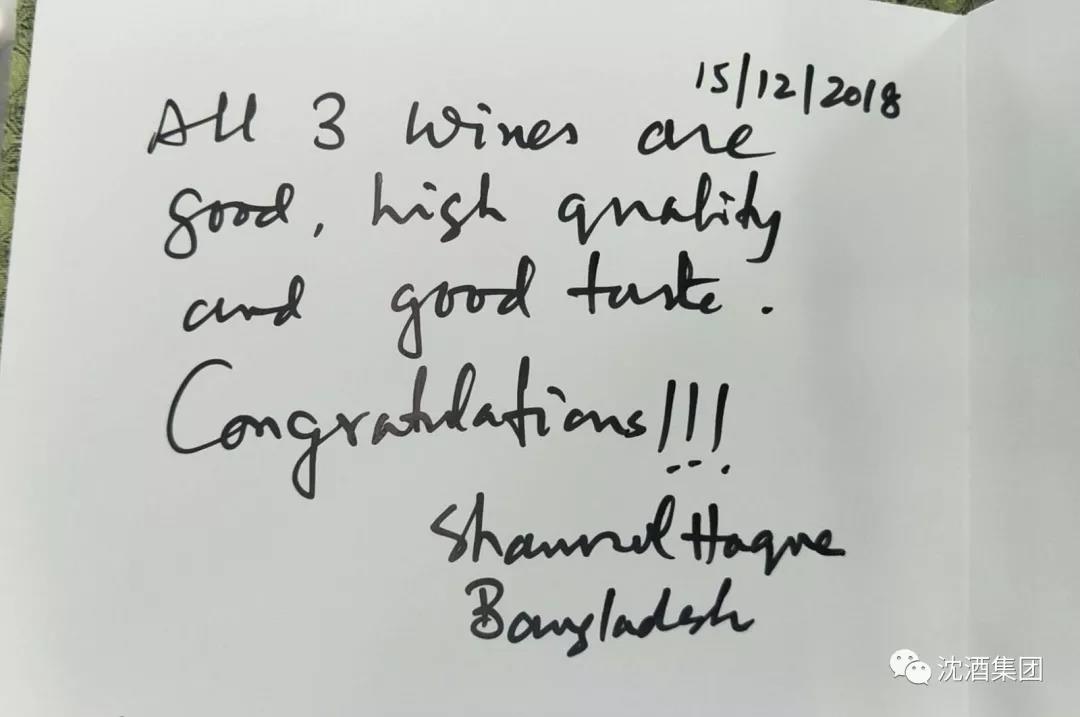 15/12/2018
All 3 wines are
good, high quality
and good taste.
Congratulations!!!
Haque
Bangladesh
沈酒集团